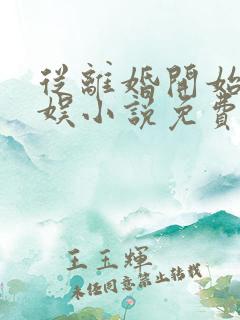 從離婚開始
娛小說免費
王玉輝
未经同意禁止转载